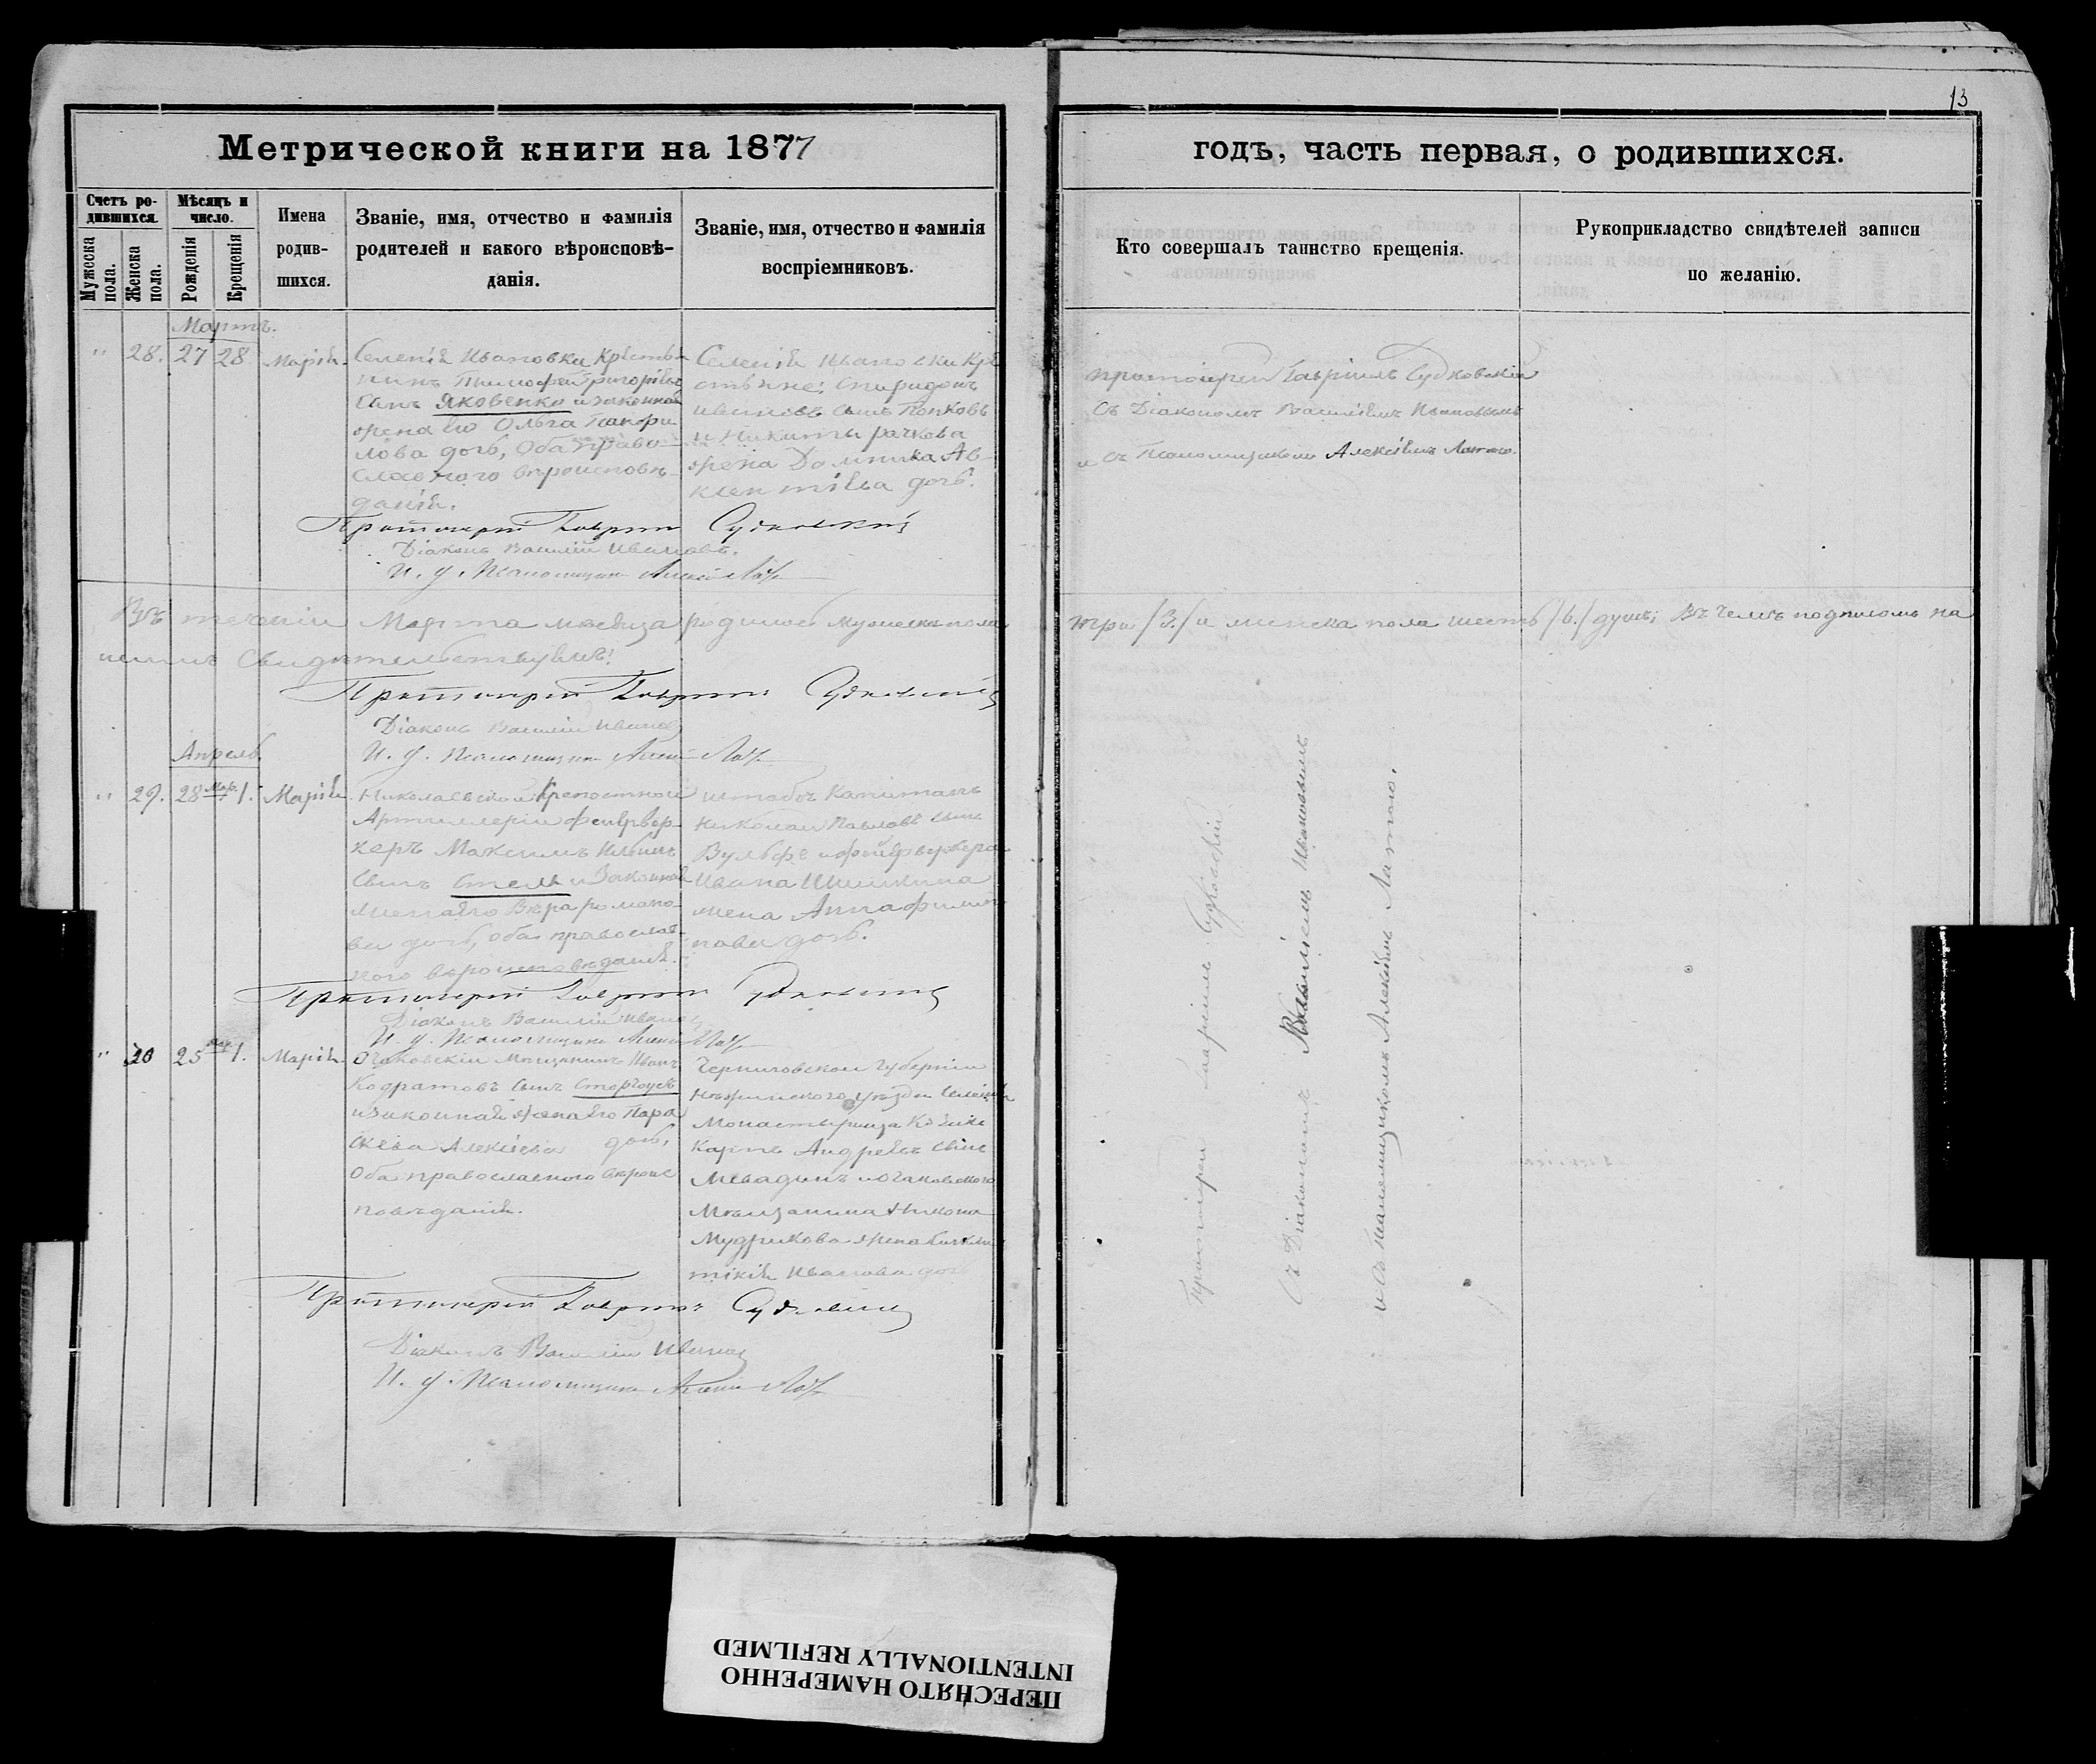 13
Метрической книги на 1877
годъ, часть первая, о родившихся.
Счетъ ро-
дившихся.
Мужеска
пола.
Женска
пола.
Мѣсяцъ и
число.
Рожденія
Крещенія
Имена
родив-
шихся.
Званіе, имя, отчество и фамилія
родителей и какого вѣроисповѣ-
данія.
Званіе, имя, отчество и фамилія
воспріемниковъ.
Кто совершалъ таинство крещенія.
Рукоприкладство свидѣтелей записи
по желанію.
Мартъ.
" 28. 27 28 Марія.
Селенія Ивановки Крестья
нинъ Тимофей Григорьевъ
Сынъ Яковенко и законная
жена его Ольга
лова дочь, Оба право-
славного вѣроисповѣ-
данія.
Селенія Ивановки Кре
стьяне: Спиридонъ
сынъ Попковъ
и Никиты Рачкова
жена Домника Ав-
дочь.
Протоіерей Гавріилъ Судковскій
Діаконъ Василій Ивановъ.
И. д. Псаломщика Алексій
Протоіерей Гавріилъ Судковскій
Съ Діакономъ Василіемъ Ивановымъ
и съ Псаломщикомъ Алексѣемъ
Въ теченіи Марта мѣсяца родилось Мужеска пола
три /3./ и женска пола шесть /6./ душъ; Въ чемъ подписомъ на
шимъ Свидѣтельствуемъ:
Протоіерей Гавріилъ Судковскій
Діаконъ Василій Ивановъ
И. д. Псаломщика Алексій
Апрель.
" 29. 28 Мар. 1. Марія.
Николаевской Крепостной
Артиллеріи Фейервер-
керъ Максимъ
Сынъ и Законная
жена его Вѣра Романо-
ва дочь, оба православ-
ного вѣроисповѣданія.
Штабсъ Капитанъ
Николай Павловъ сынъ
Вульфъ и фейерверкера
Ивана Шишкина
жена Анна
пова дочь.
Протоіерей Гавріилъ Судковскій
Діаконъ Василій Ивановъ
И. д. Псаломщика Алексій
" 30 25 Мар. 1. Марія.
Очаковскій Мѣщанинъ Иванъ
Кодратовъ Сынъ
и законная жена его Пара
скева Алексіева дочь,
Оба православного вѣроис
повѣданія.
Черниговской Губерніи
Нѣжинского уѣзда Селенія
Монастырища Козакъ
Карпъ Андреевъ сынъ
и очаковского
Мѣщанина Никона
Мудрикова жена
Иванова дочь
Протоіерей Гавріилъ Судковскій
Діаконъ Василій Ивановъ
И. д. Псаломщика Алексій
Протоіерей Гавріилъ Судковскій
Съ Діакономъ Василіемъ Ивановымъ
и Съ Псаломщикомъ Алексѣемъ
ПЕРЕСНЯТО НАМЕРЕННО
INTENTIONALLY REFILMED